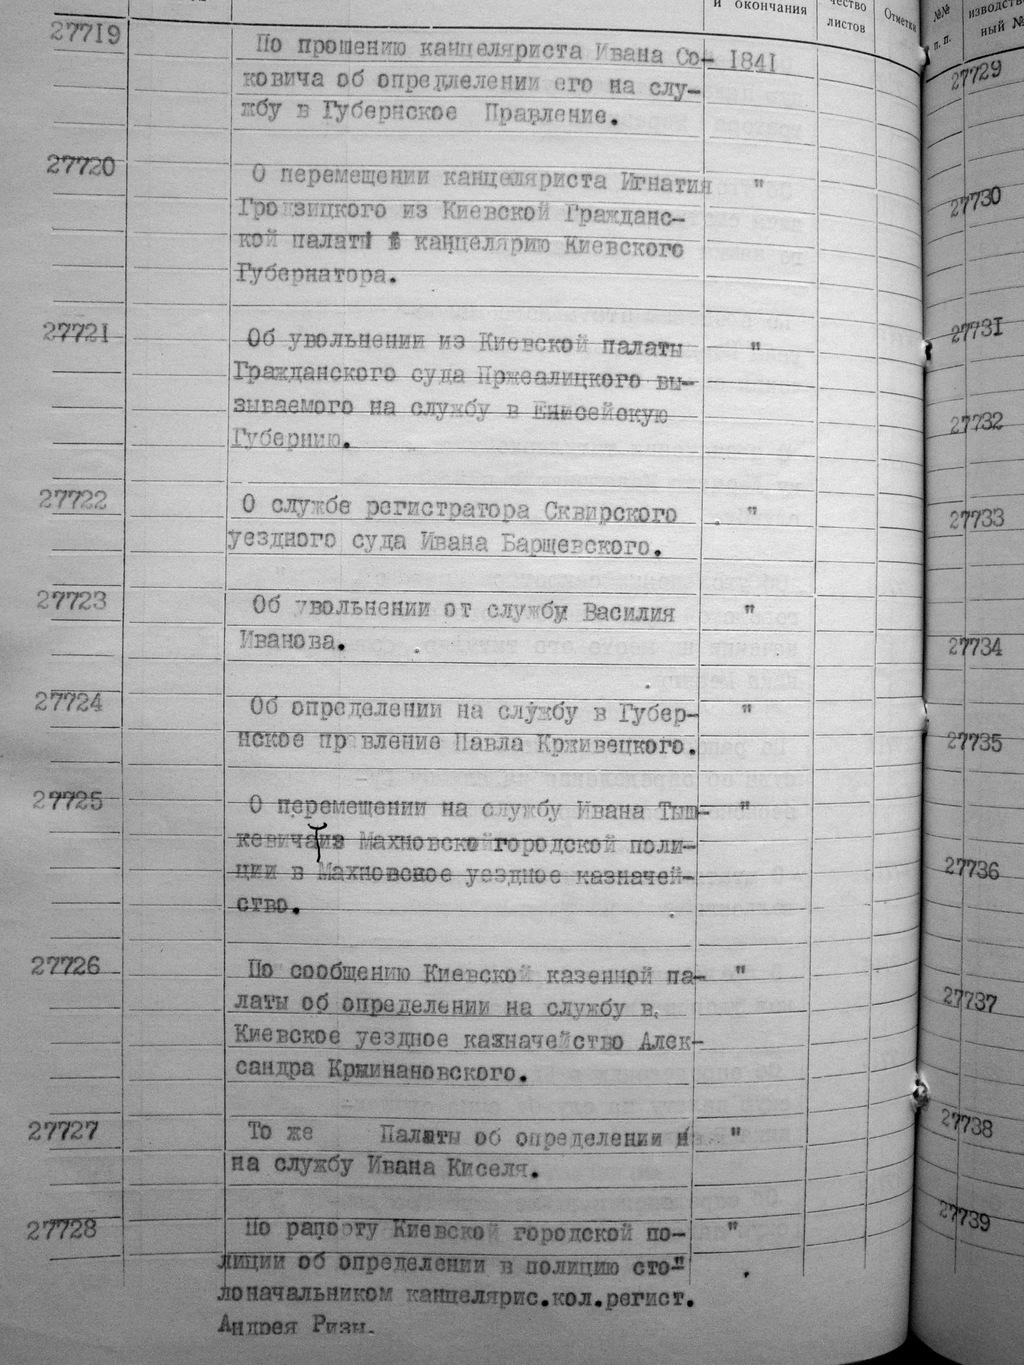 и окончания
чество
листов
Отметки
№№
п. п.
изводств
ный №
27719
По прошению канцеляриста Ивана Со- 1841
ковича об определении его на слу-
жбу в Губернское Правление.
27720
О перемещении канцеляриста Игнатия "
Гродзицкого из Киевской Гражданс-
кой палаты в канцелярию Киевского
Губернатора.
27721
Об увольнении из Киевской палаты "
Гражданского суда Пржеалицкого вы-
зываемого на службу в Енисейскую
Губернию.
27722
О службе регистратора Сквирского "
уездного суда Ивана Барщевского.
27723
Об увольнении от службы Василия "
Иванова.
27724
Об определении на службу в Губер- "
нское пр вление Павла Крживецкого.
27725
О перемещении на службу Ивана Тыш- "
кевича из Махновской городской поли-
ции в Махновское уездное казначей-
ство.
27726
По сообщению Киевской казенной па- "
латы об определении на службу в
Киевское уездное казначейство Алек-
сандра Кржинановского.
27727
То же Палаты об определении "
на службу Ивана Киселя.
27728
По рапорту Киевской городской по- "
лиции об определении в полицию сто-"
лоначальником канцелярис.кол.регист.
Андрея Ризы.
27729
27730
27731
27732
27733
27734
27735
27736
27737
27738
27739